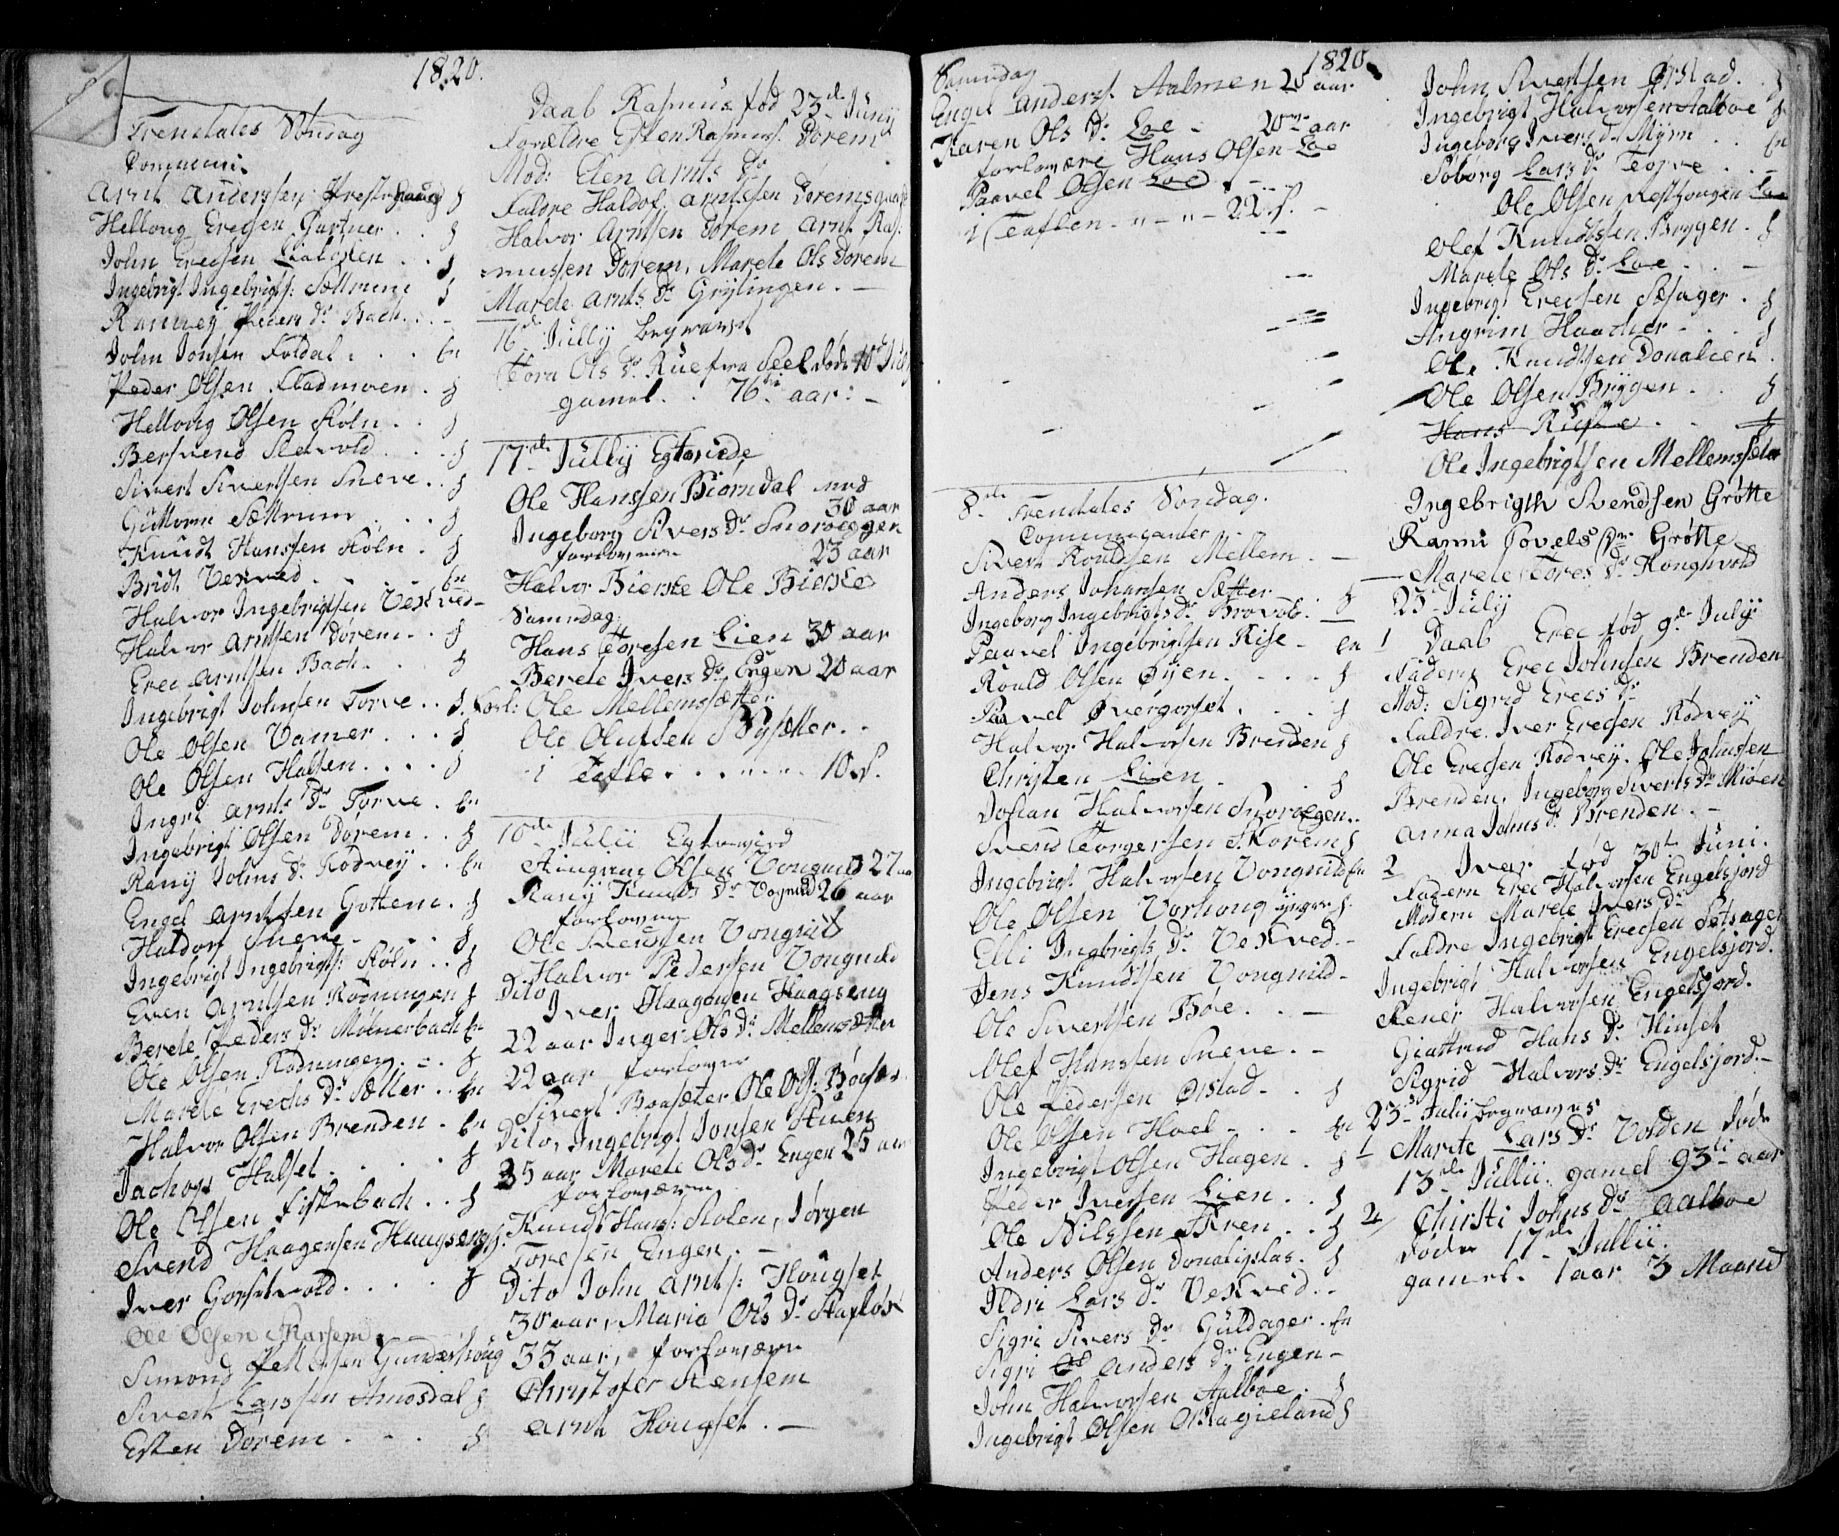 1820.
Trendtales Søndag
Communi.
Arnt Anderssen
Hellong Erecsen Gartner . . f
John Erecsen Liabøken . . f
Ingebrigt Ingebrigts: Sættrum f
Ranney Peders Dr Bach. . . -
John Jonsen Foldal . . . En
Peder Olsen Stadmoen . f
Hellong Olsen Stöln . . f
Bersvend Slavold . . . f
Sivert Sivertsen Sneve . . f
Guttorm Sættrum . . . f
Knudt Hanssen Stöln . f
Bridt Vekved . . . En
Halvor Ingebrigtsen Vekved -
Halvor Arntsen Dørem . . f
Erec Arntsen Bach . . . f
Ingebrigt Johnsen Torve . . f
Ole Olsen Vamer . . . f
Ole Olsen Halsen . . . . f
Ingrt Arnts Dr Torve . En
Ingebrigt Olsen Dørem . . f
Rany Johns Dr Rodvey . . En
Engel Arntsen Gottem . f
Haldorr Sneve . . . f
Ingebrigt Ingebrigts: Stöln . . f
Even Arntsen Rodningen f
Berete Peders Dr Mølnerbach En
Ole Olsen Rodningen . . f
Marete Erecs Dr Sætter . . En
Halvor Olsen Brenden . En
Jachop Halset . . . . f
Ole Olsen Fiskebach . . f
Svend Haagensen Haagseng f.
Iver Gorsetvold . . . f
Ole Olsen Skarsem
Simond Pettersen Gunderhoug
Sivert Larssen Amosdal f
Esten Dørem . . . f
Daab Rasmus fød 23de Juny
Forældre Esten Rasmuss. Dorem
Mod: Elen Arnts Dr
Faldre Haldor Arntssen Doremsgaard
Halvor Arntsen Dorem Arnt Ras:
mussen Dorem, Marete Ols Dorem
Marete Arnts Dr Gryttingen. -
16de Jully begravet
Tora Ols Dr Rue fra Seel døde 10de July
gamel . . 76 aar: -
17de Jully Egteviede
Ole Hanssen Biørndal med 30 aar
Ingeborg Sivers Dr Snoreggen 23 aar
forlovere
Halvor Bierke Ole Bierke
Samedag
Hans Toresen Lien 30 aar
Berete Ivers Dr Engen 20 aar
Forl: Ole Mellemsætter
Ole Olufsen Nysætter . .
1 Teefle . . . . . . 10 s.
10de Julii Egteviid
Aingrim Olsen Vongnild 27 aar
Rany Knuds Dr Vognild 26 aar
forlovere
Ole Svendsen Vongnild
Halvor Pedersen Vongnild
Dito
Iver Haagensen Haagseng
22 aar Inger Ols Dr Mellemsætter
22 aar forlovere
Sivert Boasæter Ole Ols: Bøesæ
Dito, Ingebrigt Jonsen Stuen
35 aar Marete Ols Dr Engen 25 aar
forlovere
Knudt Hans: Stolen, Jørgen
Toresen Engen. -
Dito John Arnts: Hougset
30 aar, Maria Ols Dr Stafløk
33 aar, forlovere
Christofer Stensem
Arnt Hougset. -
1820.
Samedag
Engel Anderss. Aalmen 25 aar
Karen Ols Dr Loe - 20 aar
forlovere Hans Olsen Loe
Paavel Olsen Loe -
1 Teaflen - " - " - 22 s. -
8de Trendtales Søndag.
Communicanter
Sivert Rondsen Mellem . -
Anders Johansen Sætter . f
Ingeborg Ingebrigts Dr Brovold. -
Paavel Ingebrigtsen Rise - En
Roald Olsen Öyen . . . . f
Paavel Övergorset . . . f
Halvor Halvorsen Brenden f
Christen Lien . . . f
Johan Halvorsen Snoregen . .
Svend Torgersen Skorem f
Ingebrigt Halvorsen Vongnild En
Ole Olsen Vorhong yngre f
Elli Ingebrigts Dr Vekved. -
Jens Knudtsen Vongnild -
Ole Sivertsen Boe . . -
Olef Hanssen Sneve . -
Ole Pedersen Ørstad . . f
Ole Olsen Hoel - . . En
Ingebrigt Olsen Hagen . f
Peder Iversen Lien . . f
Ole Nilssen Stren . . f
Anders Olsen Donaliplas . f
Ildri Lars Dr Vekved . -
Sigri Sivers Dr Guldager . En
Sigri Anders Dr Engen -
John Halvorsen Aalboe . f
Ingebrigt Olsen Ostagieland f
John Sivertsen Ørstad . f
Ingebrigt Halvorsen Aalboe f
Ingeborg Ivers Dr Myrn . . En
Søborg Lars Dr Torve . . -
Ole Olsen Loe
Olef Knudtsen Bryggen . f
Marete Ols Dr Loe . . -
Ingebrigt Erecsen Sæsager . f
Angrim Haacker . . . f
Ole Knudtsen Donalien .
Ole Olsen Bryggen . . f
Hans Rise . . . f
Ole Ingebrigtsen Mellemsæter
Ingebrigth Svendsen Grøtte
Ranni Povels Dr Grøtte
- Marete Tores Dr Kongsvold
23 July
1 Daab Erec fød 9de July
Faderen Erec Johnsen Brenden
Mod: Sigrid Erecs Dr
Faldre. Iver Erecsen Rodvey
Ole Erecsen Rodvey. Ole Johnsen
Brenden, Ingeborg Siverts Dr Mioen
Anna Johns Dr Brenden . -
2 Iver fød 30te Juni.
Fadern Erec Halvorsen Engelsjord
Modern Marete Ivers Dr
Faldre Ingebrigt Erecsen Setsager
Ingebrigt Halvorsen Engelsjord.
Stener Halvorsen Engelsjord.
Giattrud Hans Dr Hinset
Sigrid Halvors Dr Engelsjord. -
23de Julii begravnes
1 Marete Lars Dr Volden døde
13de Jullii. gamel 93 aar
2 Chirsti Johns Dr Aalboe
døde 17de Jullii.
gamel. 1 aar 3 Maaned